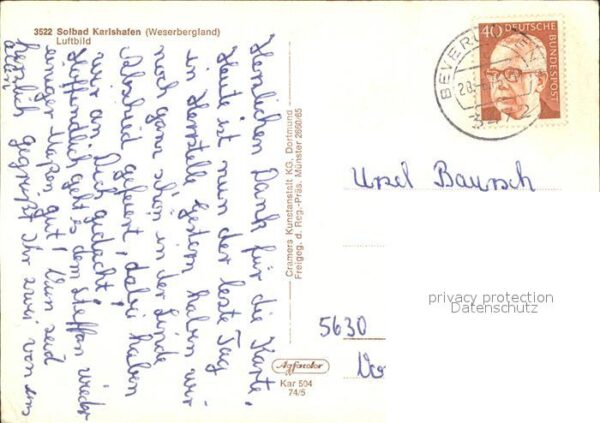 3522 Solbad Karlshafen (Weserbergland)
Luftbild
Herzlichen Dank für die Karte,
Heute ist nun der letzte Tag
in Herstelle. Gestern haben wir
noch ganz schön in der Linde
Abschied gefeiert, dabei haben
wir an Dich gedacht,
Hoffentlich geht es dem Steffen wieder
einiger Maßen gut, Nun seid
herzlich gegrüßt Ihr zwei von uns
allen
Cramers Kunstanstalt KG, Dortmund
Freigeg. d. Reg.-Präs. Münster 2660/65
Agfacolor
Kar 504
74/5
40
DEUTSCHE
BUNDESPOST
BEVER
3472
Ursel Baursch
privacy protection
Datenschutz
5630